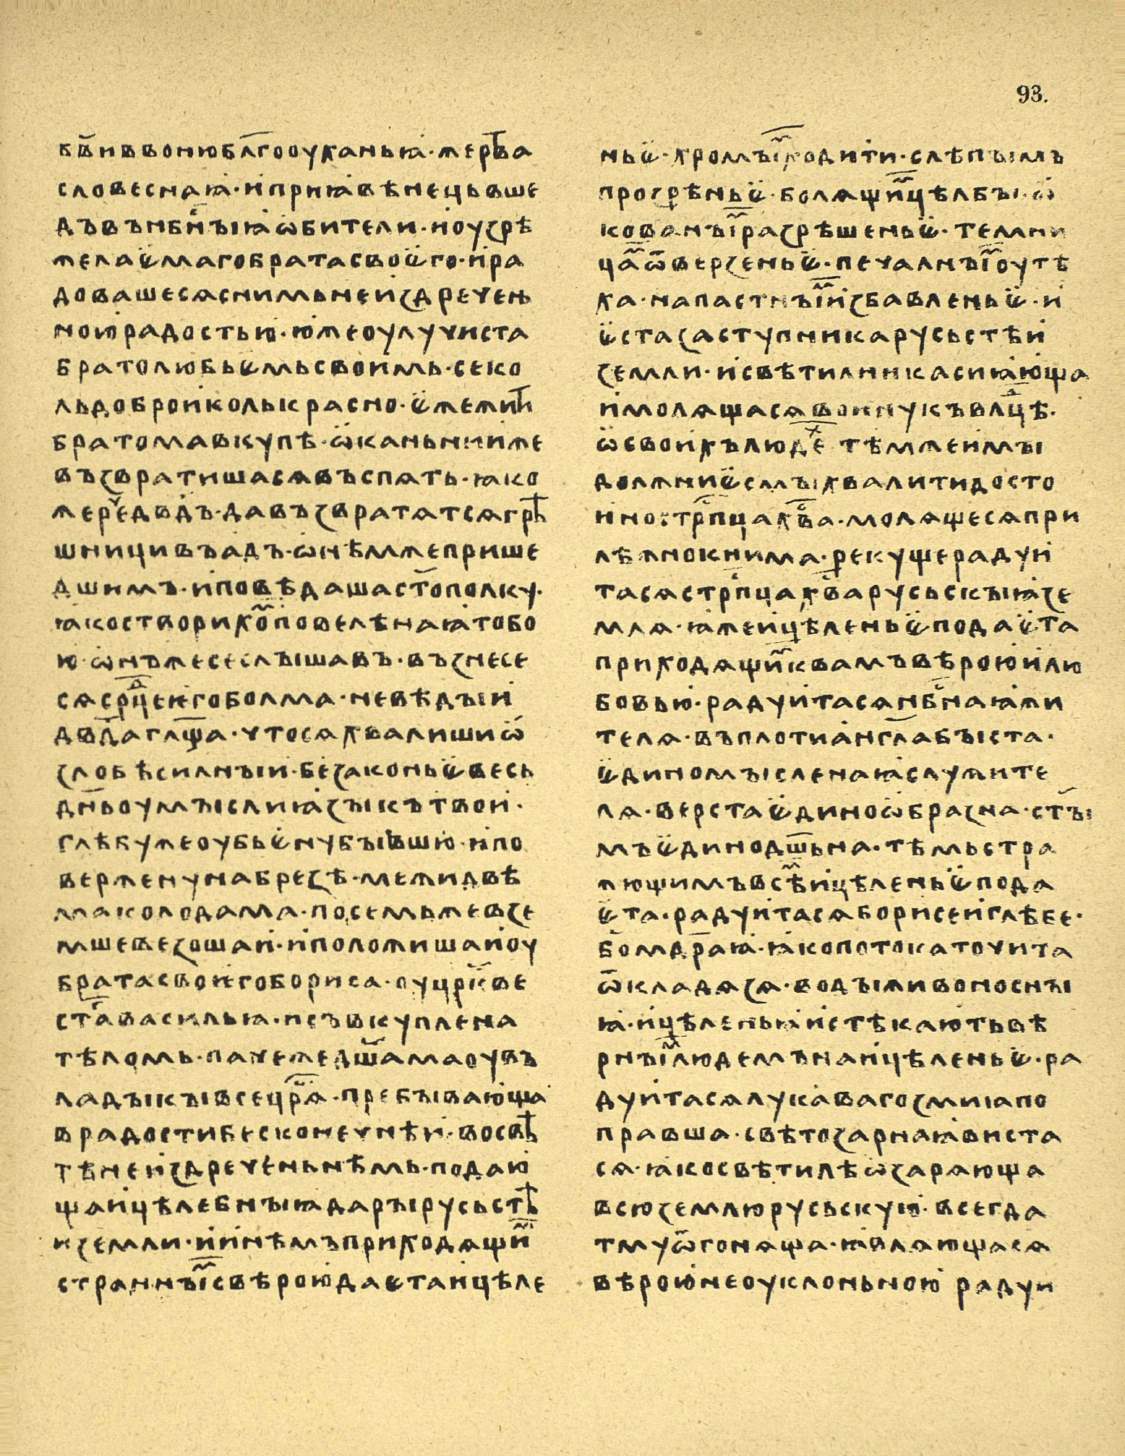 93.
бв҃и в воню бл҃гооуханьꙗ · жерьтва
словеснаꙗ · и приꙗ вѣнець вше
дъ въ нбн҇ыꙗ ѡбители · и оузрѣ
желаѥмаго брата своѥго · и ра
довашесѧ с нимь неиздречен
ною радостью · юже оулучиста
братолюбьѥмь своимь · се ко
ль добро и коль красно · ѥже жити
братома вкупѣ · ѡканьнии же
възвратишасѧ въспѧть · ꙗко
же реч҇ дв҃дъ · да възвратѧтсѧ грѣ
шници въ адъ · ѡнѣм же прише
дшимъ · и повѣдаша ст҃ополку ·
ꙗко створихом повелѣнаꙗ тобо
ю · ѡнъ же се слышавъ · възнесе
сѧ срд҇це ѥго болма · не вѣдыи
дв҃да гл҃ща · что сѧ хвалиши ѡ
злобѣ силныи · безаконьѥ весь
дн҃ь оумысли ꙗзыкъ твои ·
глѣбу же оубьѥну бывшю · и по
вержену на брезѣ · межи двѣ
ма колодама · посемь же взе
мше везоша и · и положиша и оу
брата своѥго бориса · оу цр҃кве
ст҃а василья · и съвкуплена
тѣломь · паче же дш҃ама оу в
ладыкы всецр҃ѧ · пребывающа
в радости бесконечнѣи · во свѣ
тѣ неиздреченьнѣмь · подаю
ща ицѣлебныꙗ дары русьстѣ
и земли · и инѣмъ приходѧщи
странныи с вѣрою даѥта ицѣле
ньѥ · хромыи ходити · слѣпымъ
прозрѣньѥ · болѧщи цѣлбы · ѡ
кованыи разрѣшеньѥ · темни
ца ѿверзеньѥ · печалныи оутѣ
ха · напастныи избавленьѥ · и
ѥста заступника русьстѣи
земли · и свѣтилника сиꙗюща
и молѧщасѧ воину къ влд҇цѣ ·
ѡ своихъ людех тѣм же и мы
должни ѥсмы хвалити досто
ино стр҇тпца хв҃а · молѧщесѧ при
лѣжно к нима · рекуще радуи
тасѧ стр҇тпца хв҃а русьскыꙗ зе
млѧ · ꙗже ицѣленьѥ подаѥта
приходѧщи к вама вѣрою и лю
бовью · радуитасѧ нб҇наꙗ жи
телѧ · въ плоти анг҃ла быста ·
ѥдиномысленаꙗ служите
лѧ · верста ѥдиноѡбразна · ст҃ы
мъ ѥдинодш҃ьна · тѣмь стра
жющимъ всѣм ицѣленьѥ пода
ѥта · радуитасѧ борисе и глѣбе ·
бо҃мдраꙗ · ꙗко потока точита
ѿ кладѧзѧ · воды живоносны
ꙗ · ицѣленьꙗ истѣкають вѣ
рным людемъ на ицѣленьѥ · ра
дуитасѧ лукаваго змиꙗ по
правша · свѣтозарнаꙗ ꙗвиста
сѧ · ꙗко свѣтилѣ ѡзарѧюща
всю землю русьскую · всегда
тму ѿгонѧща · ꙗвлѧющасѧ
вѣрою неоуклоньною радуи